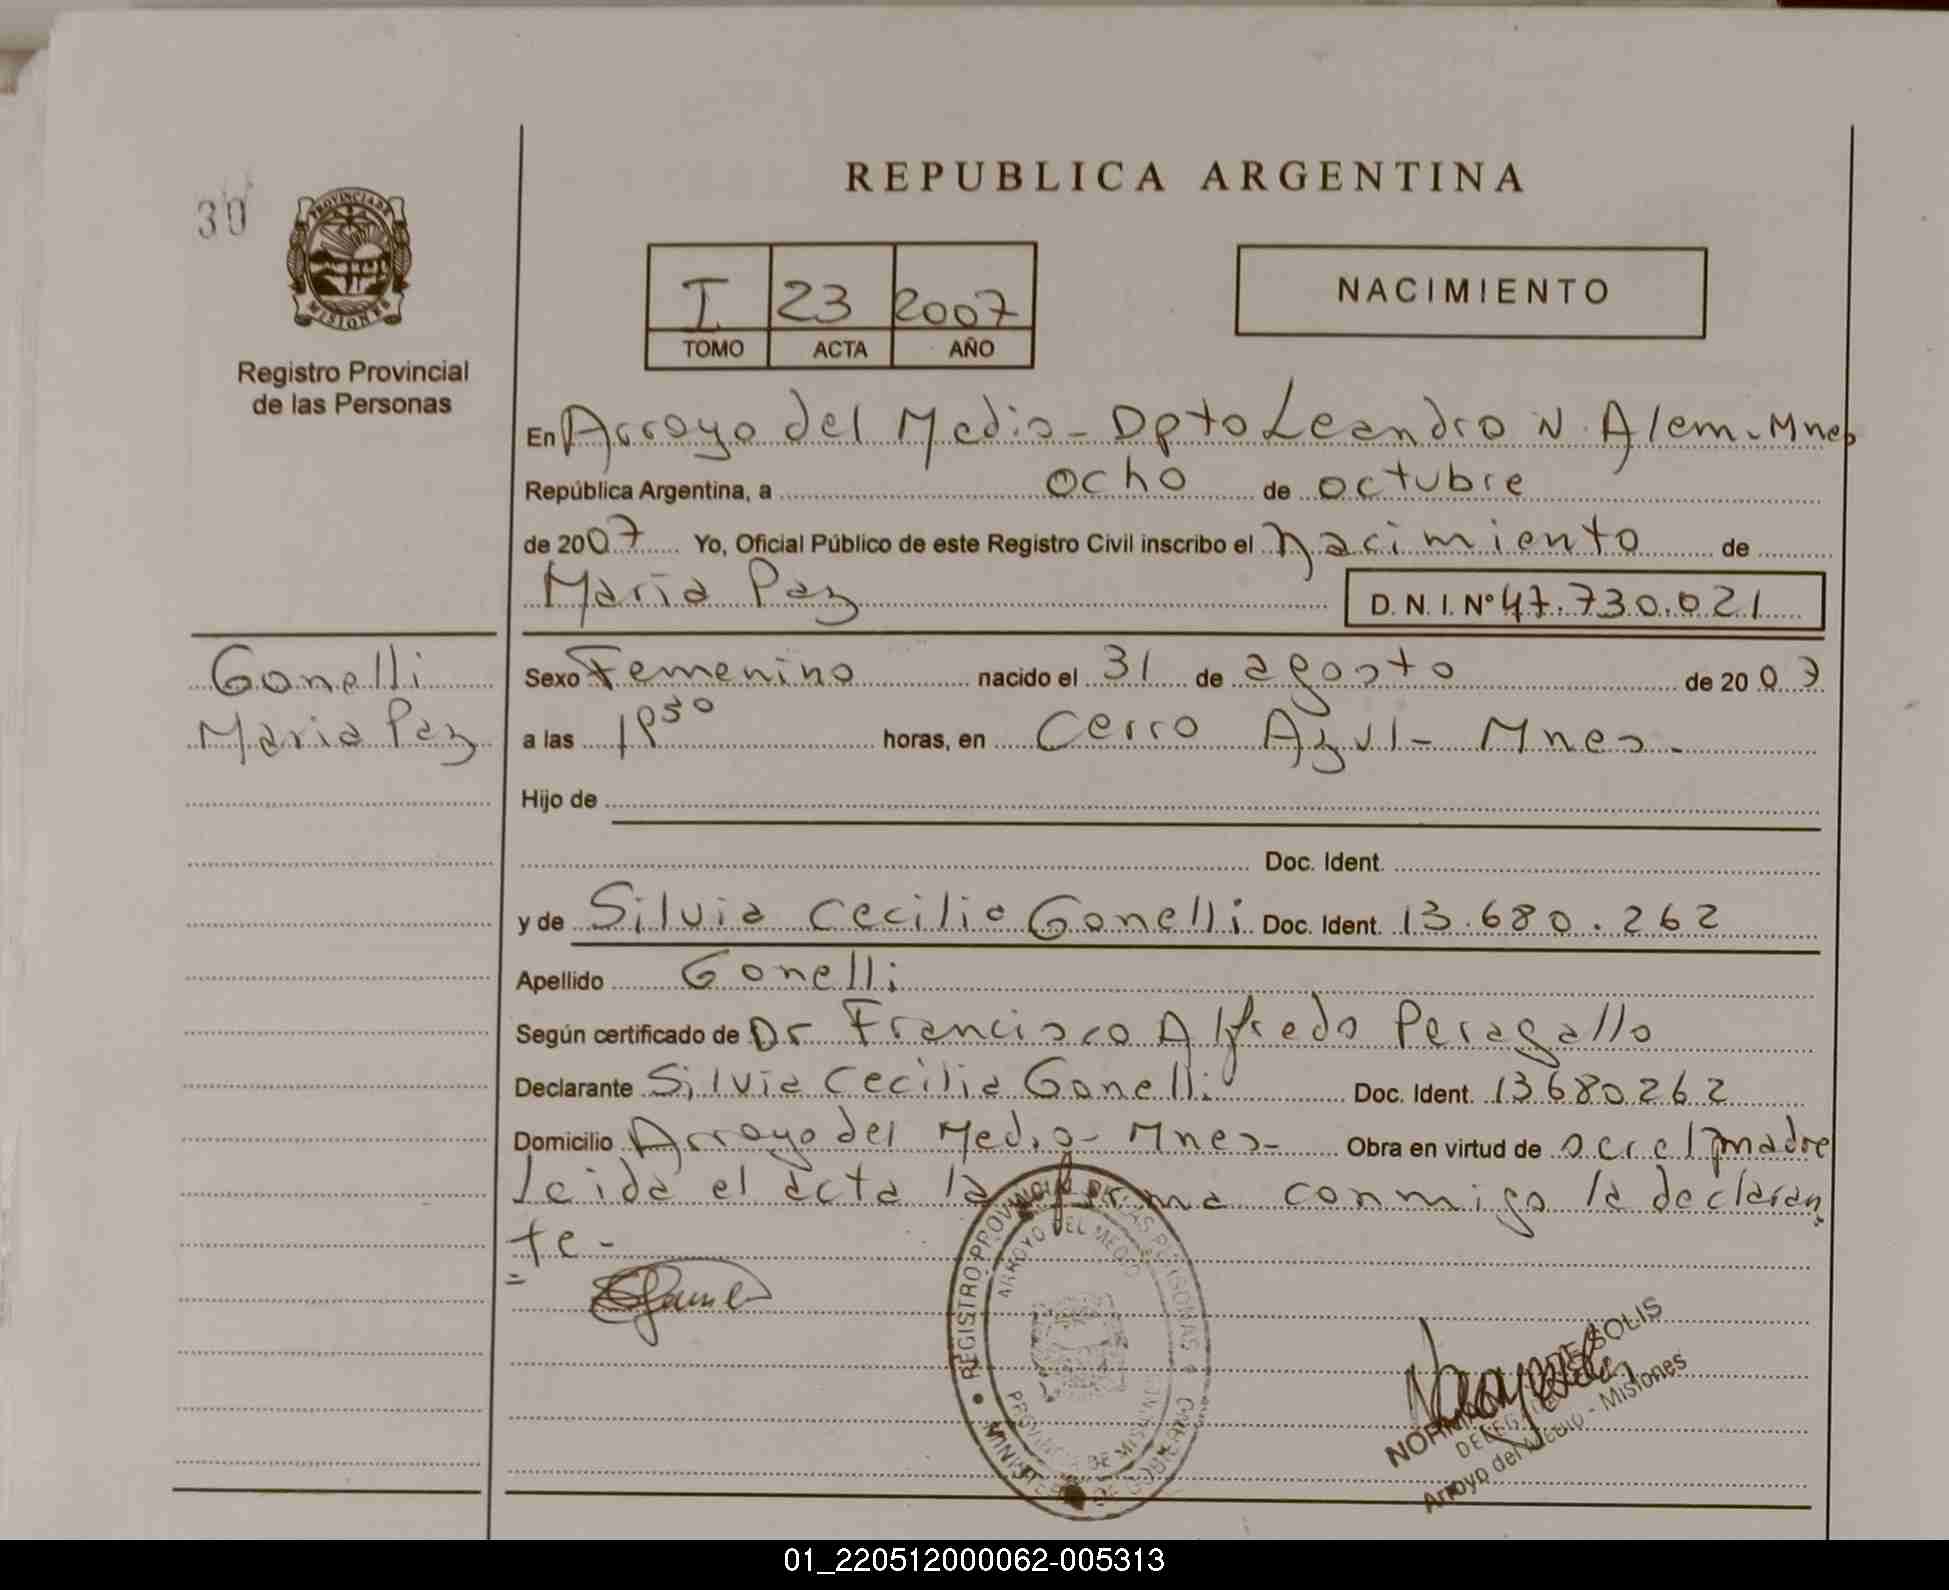 REPUBLICA ARGENTINA
30
PROVINCIA DE
MISIONES
Registro Provincial
de las Personas
I 23 2007
TOMO ACTA AÑO
NACIMIENTO
En Arroyo del Medio - Dpto Leandro N. Alem - Mnes
República Argentina, a ocho de octubre
de 2007 Yo, Oficial Público de este Registro Civil inscribo el nacimiento de
María Paz D. N. I. Nº 47.730.021
Gonelli
María Paz
Sexo Femenino nacido el 31 de agosto de 2007
a las horas, en Cerro Azul - Mnes -
Hijo de
Doc. Ident.
y de Silvia Cecilia Gonelli Doc. Ident. 13.680.262
Apellido Gonelli
Según certificado de Dr Francisco Alfredo Peragallo
Declarante Silvia Cecilia Gonelli Doc. Ident. 13680262
Domicilio Arroyo del Medio - Mnes - Obra en virtud de madre
Leida el acta la firma conmigo la declaran
te -
REGISTRO PROVINCIAL DE LAS PERSONAS
ARROYO DEL MEDIO
PROVINCIA DE MISIONES
MINISTERIO DE GOBIERNO
SOLIS
Arroyo del Medio - Misiones
01_220512000062-005313